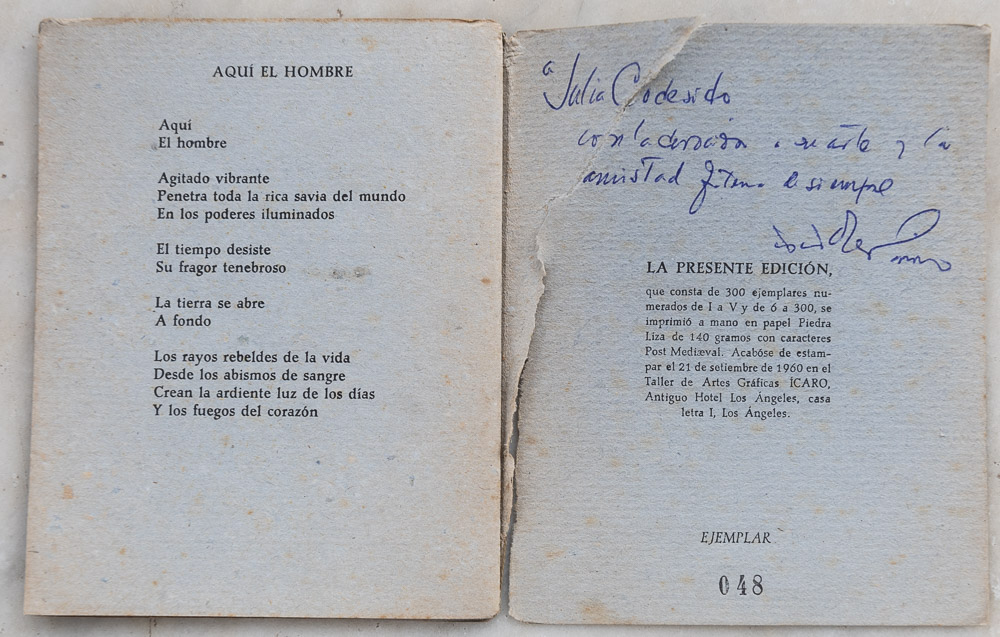 AQUÍ EL HOMBRE
Aquí
El hombre
Agitado vibrante
Penetra toda la rica savia del mundo
En los poderes iluminados
El tiempo desiste
Su fragor tenebroso
La tierra se abre
A fondo
Los rayos rebeldes de la vida
Desde los abismos de sangre
Crean la ardiente luz de los días
Y los fuegos del corazón
a Julia Codesido
con la devoción a su arte y la
amistad de siempre
LA PRESENTE EDICIÓN,
que consta de 300 ejemplares nu-
merados de I a V y de 6 a 300, se
imprimió a mano en papel Piedra
Liza de 140 gramos con caracteres
Post Mediæval. Acabóse de estam-
par el 21 de setiembre de 1960 en el
Taller de Artes Gráficas ICARO,
Antiguo Hotel Los Ángeles, casa
letra I, Los Ángeles.
EJEMPLAR
048